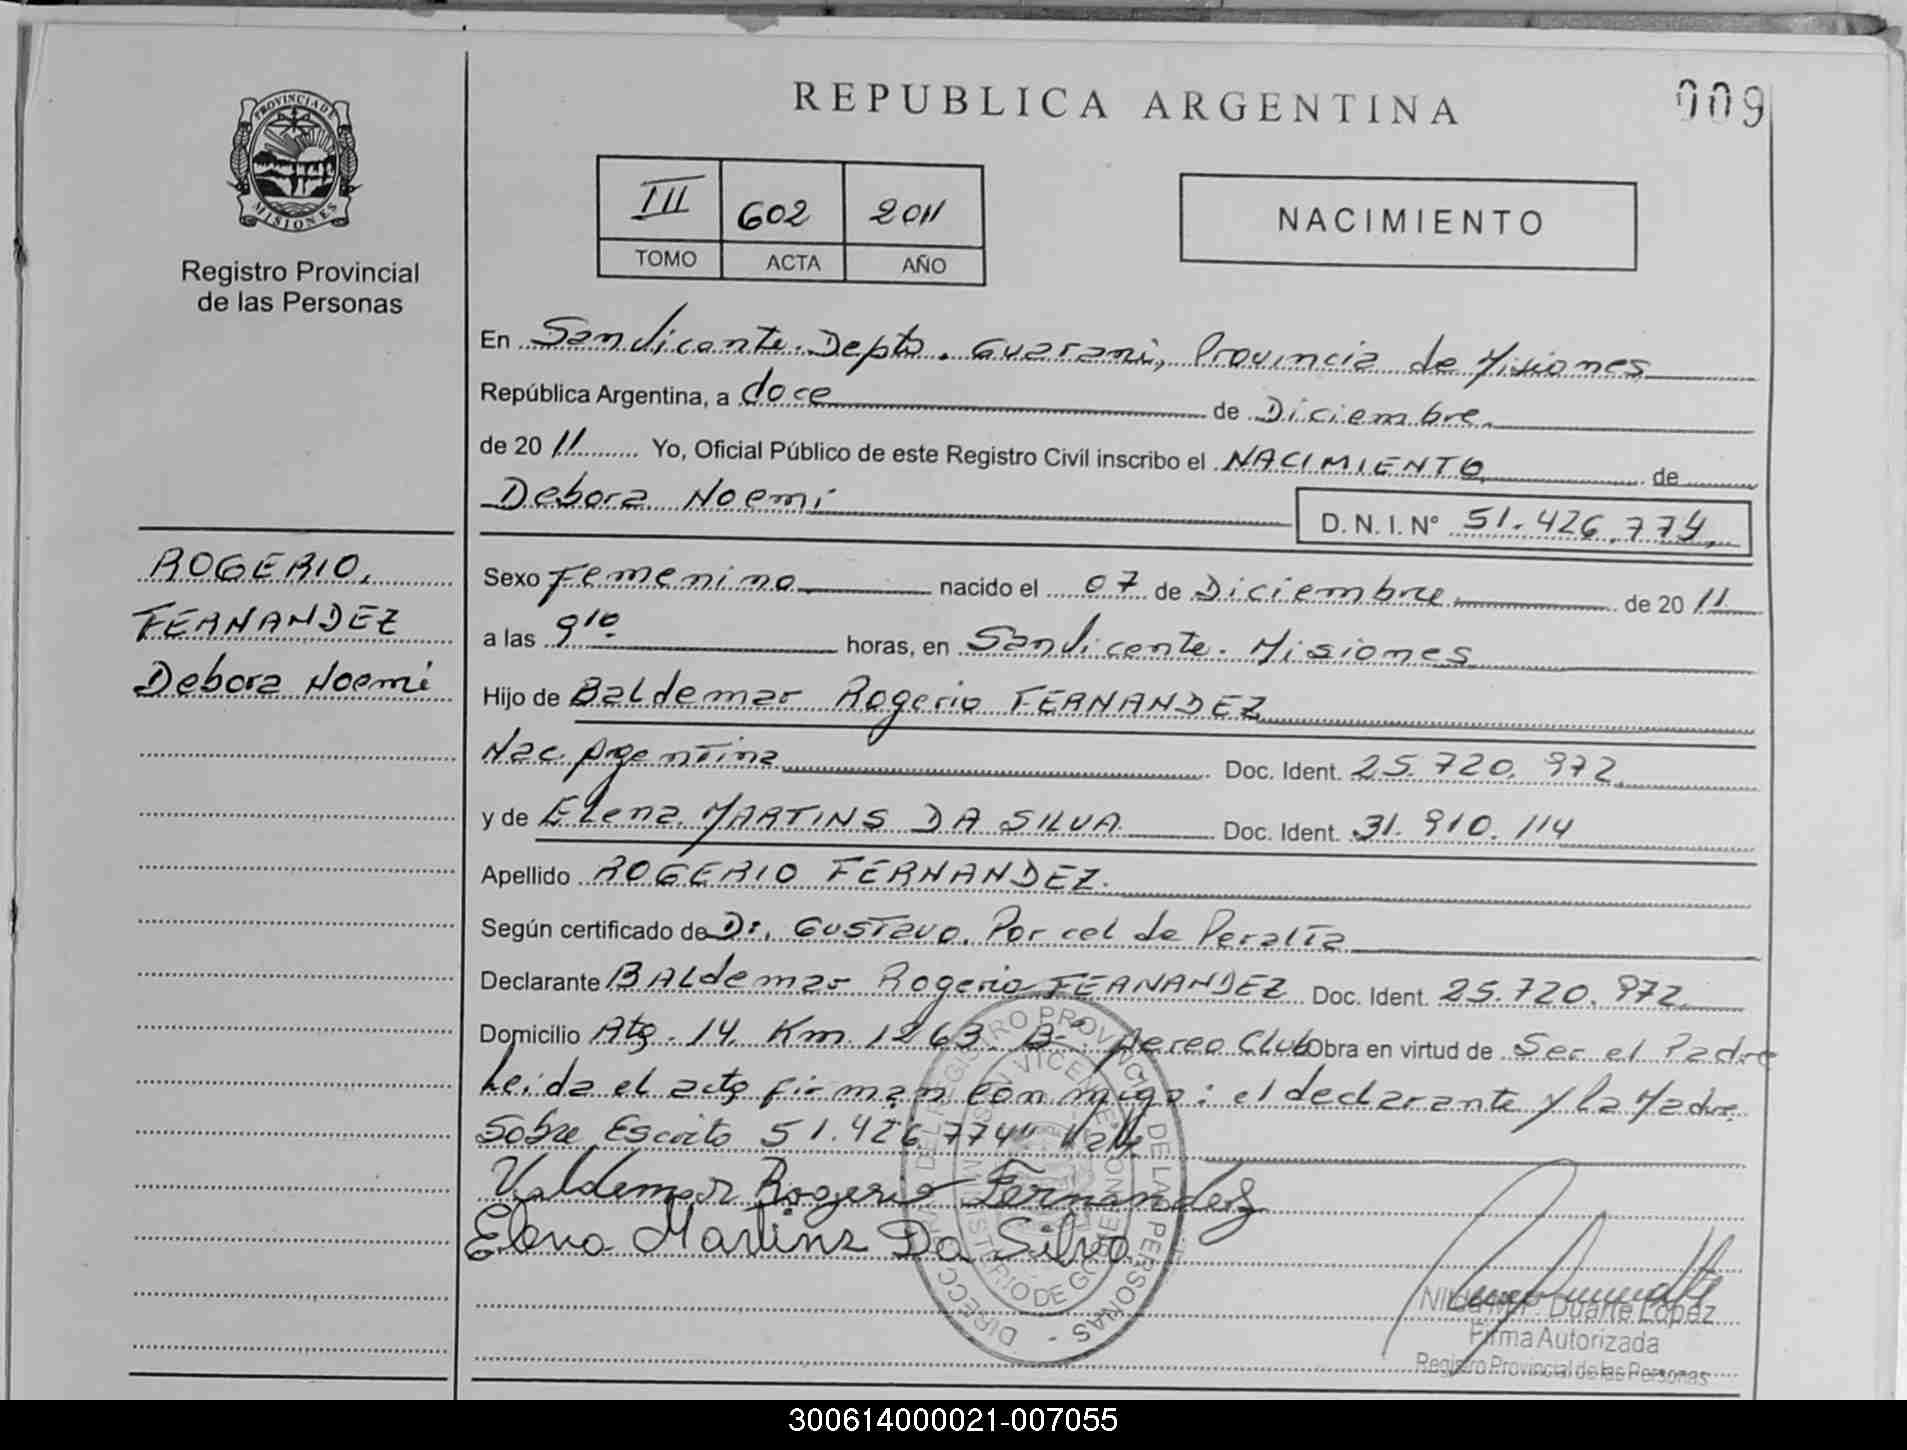 REPUBLICA ARGENTINA
009
PROVINCIA DE
MISIONES
Registro Provincial
de las Personas
III 602 2011
TOMO ACTA AÑO
NACIMIENTO
En Sanvicente. Depto. Guarani, Provincia de Misiones
República Argentina, a doce de Diciembre
de 2011 Yo, Oficial Público de este Registro Civil inscribo el NACIMIENTO de
Debora Noemi D.N.I.Nº 51.426.774
ROGERIO,
FERNANDEZ
Debora Noemi
Sexo Femenino nacido el 07 de Diciembre de 2011
a las 9¹⁰ horas, en Sanvicente. Misiones
Hijo de Baldemar Rogerio FERNANDEZ
Nac Argentina Doc. Ident. 25.720.972
y de Elena MARTINS DA SILVA Doc. Ident. 31.910.114
Apellido ROGERIO FERNANDEZ.
Según certificado de Dr. Gustavo Porcel de Peralta
Declarante BALdemar Rogerio FERNANDEZ Doc. Ident. 25.720.972
Domicilio 14 Km 1263 Bº Aereo Club Obra en virtud de Ser el Padre
Leida el acta firman conmigo: el declarante y la Madre
Sobre Escrito 51.426.774"
Valdemar Rogerio Fernandez
Elena Martins Da Silva
DIRECC. GRAL. DEL REGISTRO PROVINCIAL DE LAS PERSONAS -
MINISTERIO DE GOBIERNO
SAN VICENTE
Duarte López
Firma Autorizada
Registro Provincial de las Personas
300614000021-007055